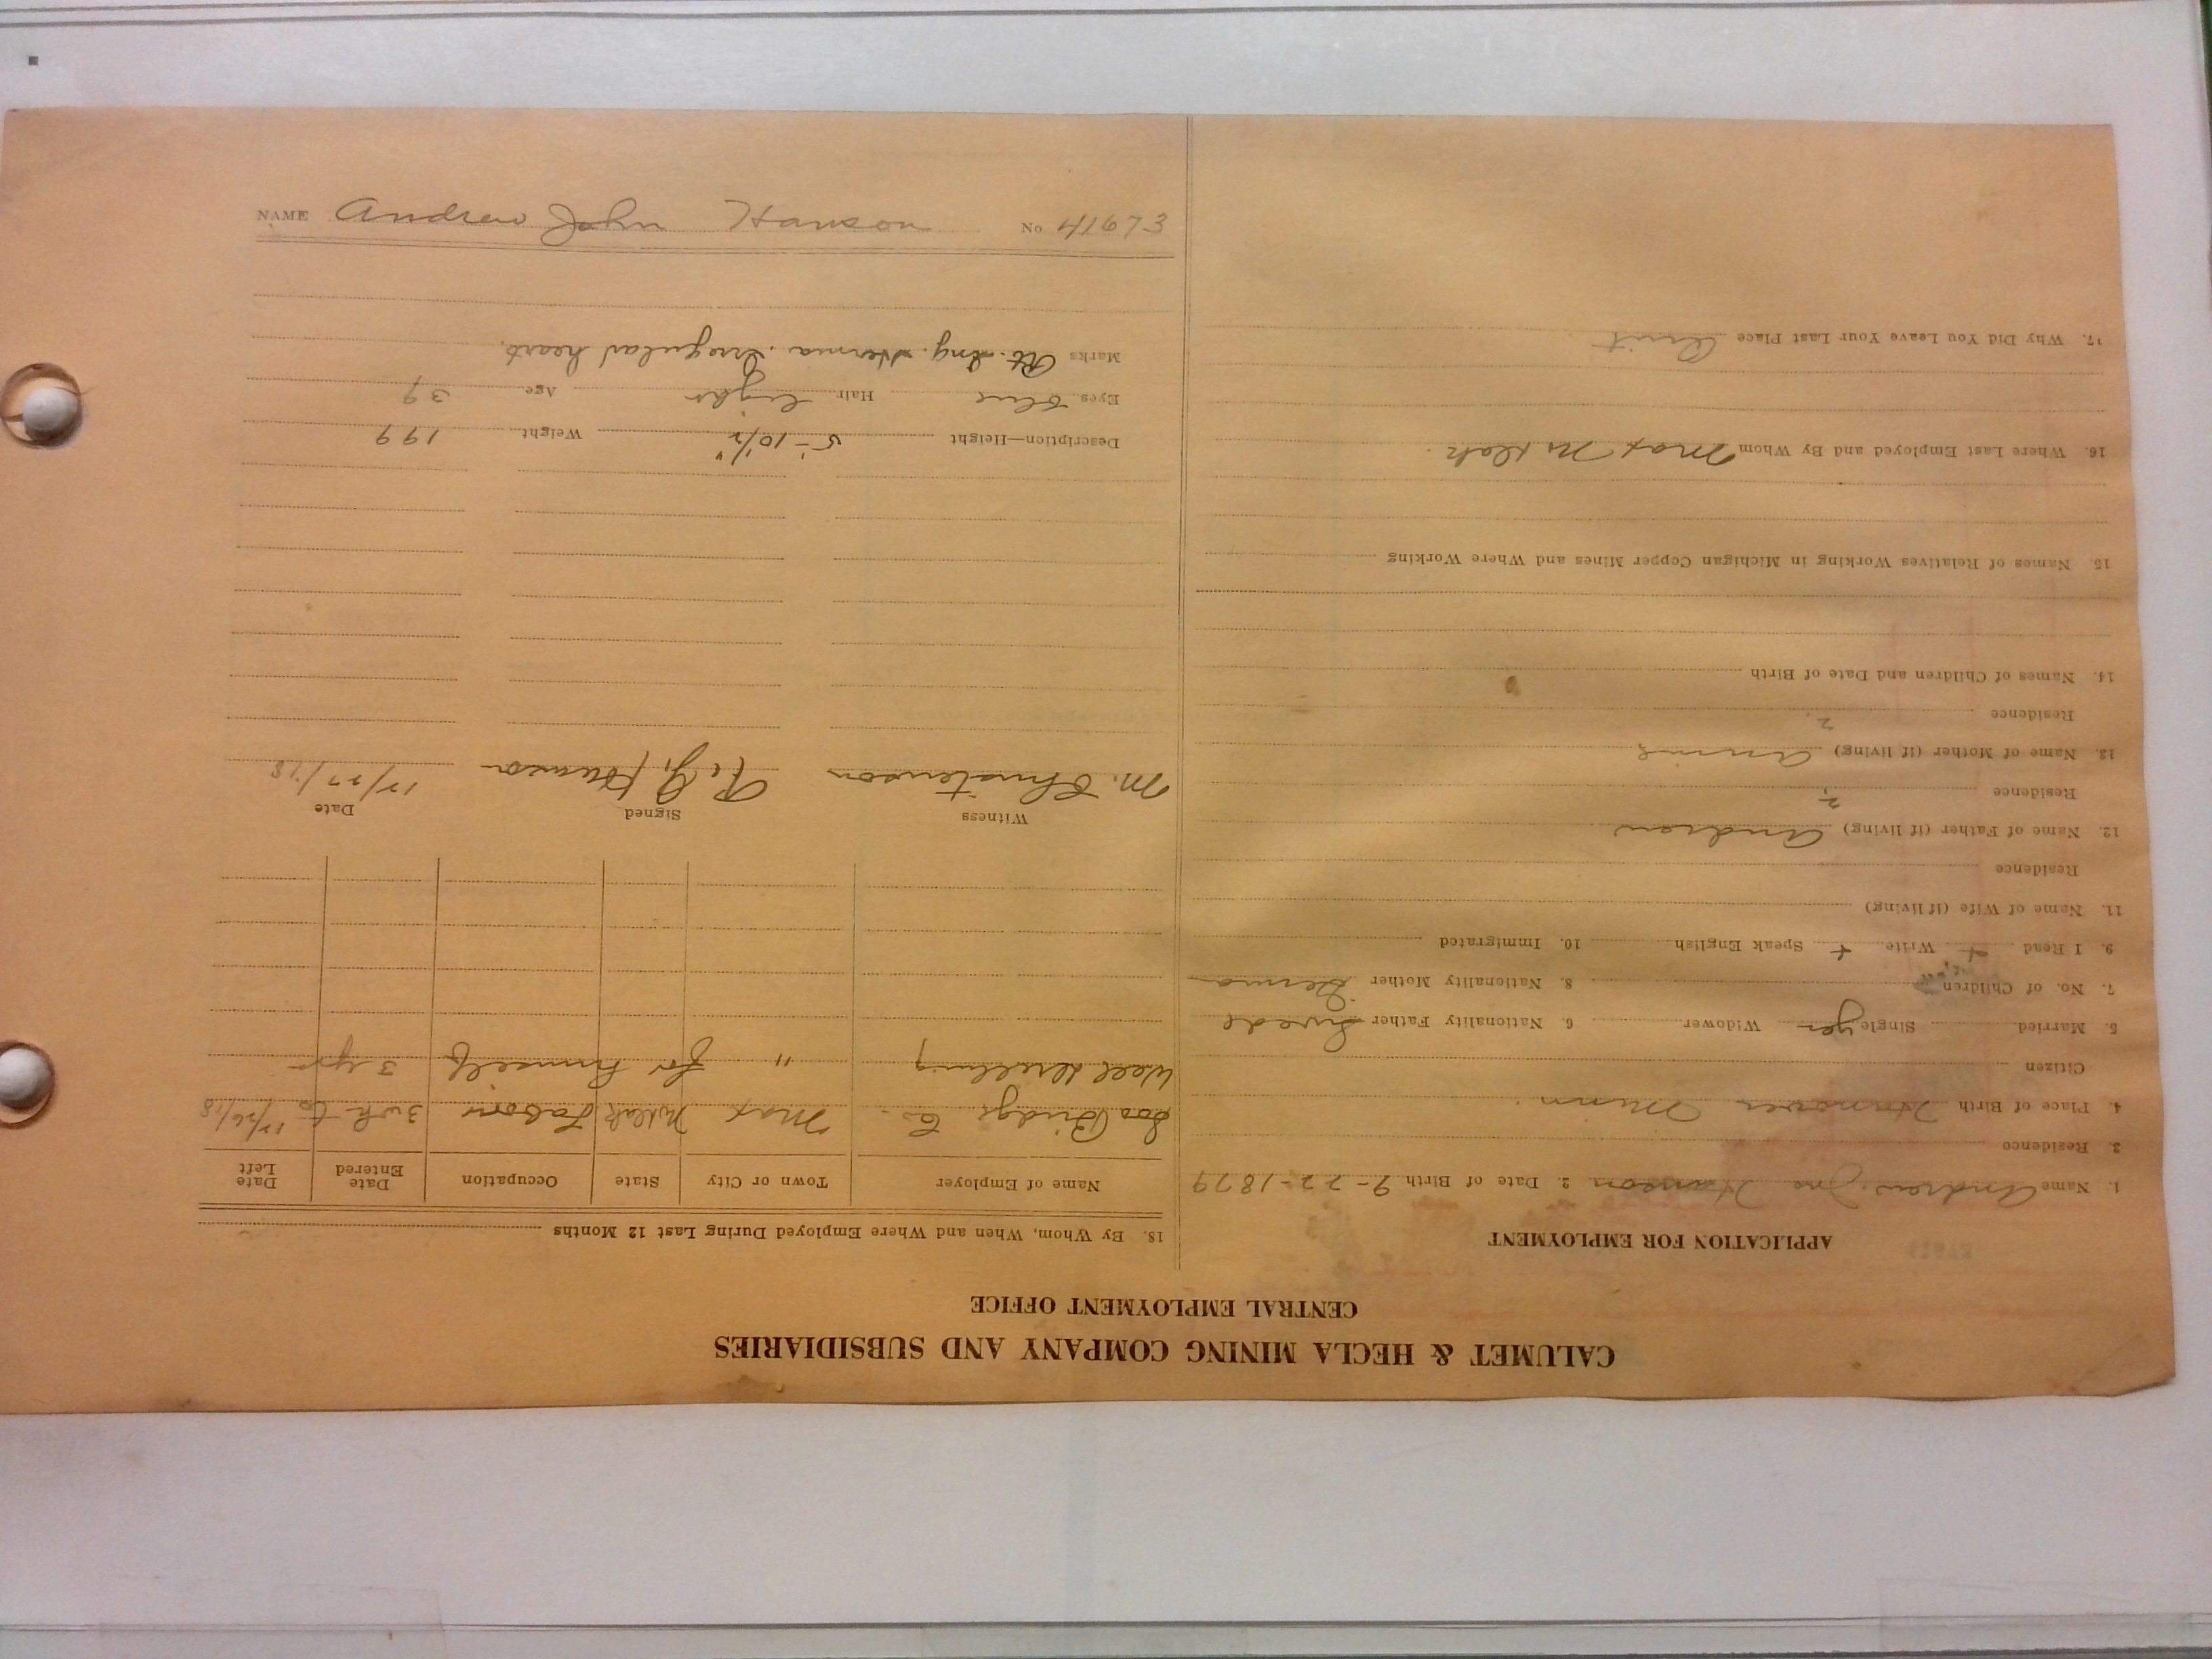 CALUMET & HECLA MINING COMPANY AND SUBSIDIARIES
CENTRAL EMPLOYMENT OFFICE
APPLICATION FOR EMPLOYMENT
1. Name Andrew Jno Hanson 2. Date of Birth 9-22-1879
3. Residence
4. Place of Birth Hanover Minn
Citizen
5. Married Single yes Widower 6. Nationality Father Swede
7. No. of Children 8. Nationality Mother
9. I Read + Write + Speak English 10. Immigrated
11. Name of Wife (if living)
Residence
12. Name of Father (if living) Andrew
Residence ?
13. Name of Mother (if living) Annie
Residence ?
14. Names of Children and Date of Birth
15. Names of Relatives Working in Michigan Copper Mines and Where Working
16. Where Last Employed and By Whom Max N Dak
17. Why Did You Leave Your Last Place Quit
18. By Whom, When and Where Employed During Last 12 Months
Name of Employer Town or City State Occupation Date Entered Date Left
Soo Bridge Co. Max N Dak Labor 3 wk 12/26/18
Well drilling " for himself 3 yrs
Witness Signed Date
M. Christenson A. J. Hanson 12/27/18
Description—Height 5'-10 1/2" Weight 199
Eyes blue Hair light Age 39
Marks Rt. Ing. Hernia. Irregular heart.
NAME Andrew John Hanson No 41673